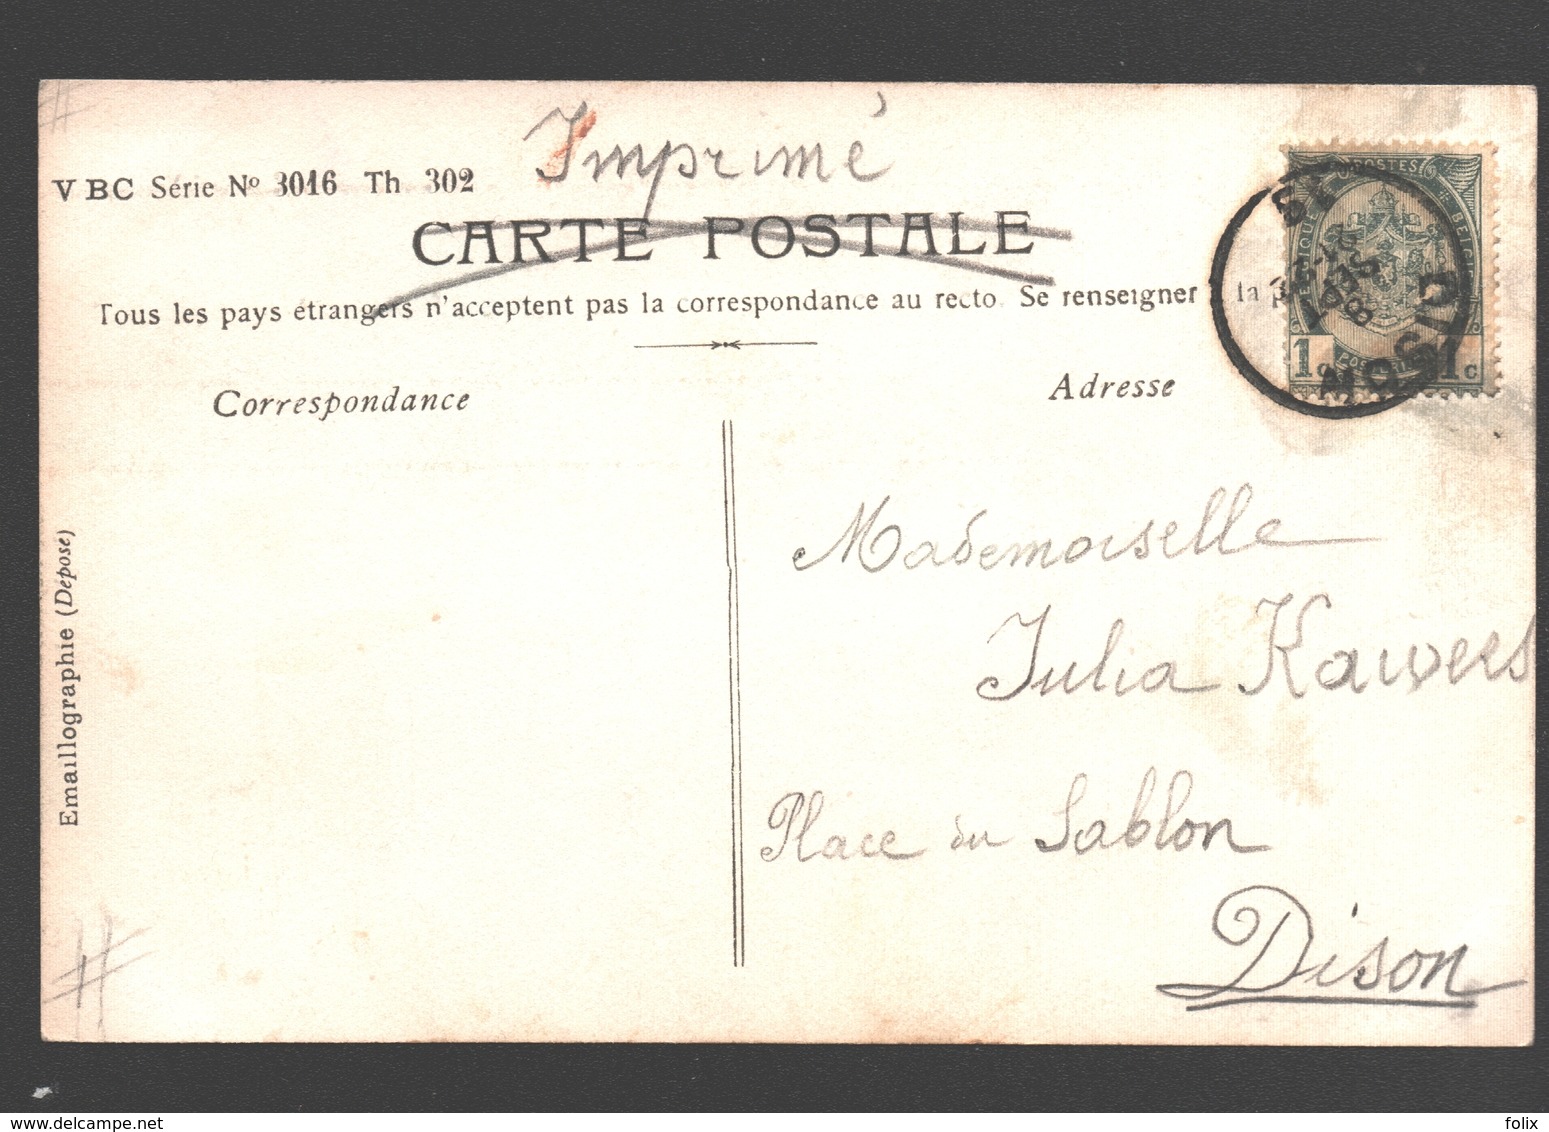 Imprimé
VBC Série Nº 3016 Th 302
CARTE POSTALE
Tous les pays étrangers n'acceptent pas la correspondance au recto. Se renseigner la
Correspondance
Adresse
POSTES
1c 1c
DISON
8 SEPT
Mademoiselle
Julia Kawers
Place du Sablon
Dison
Emaillographie (Déposé)
folix